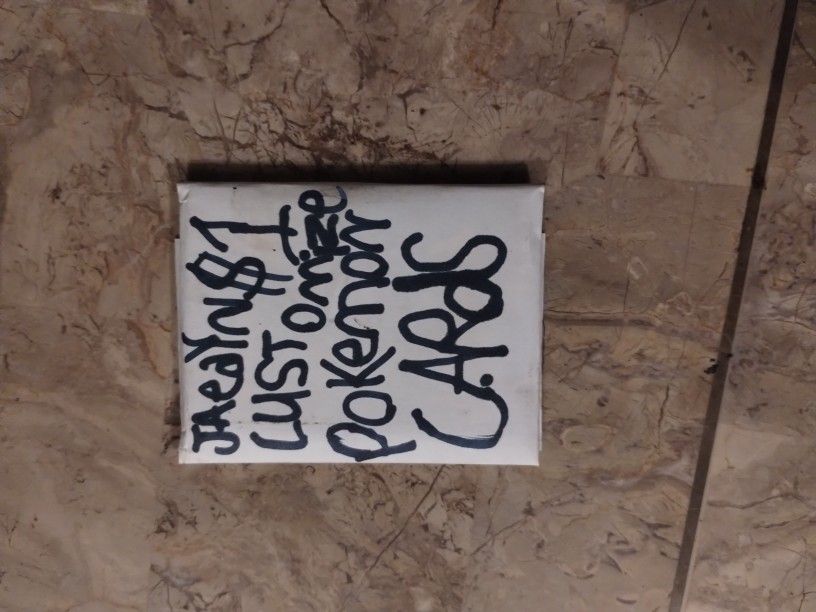 JAedYN$1
CUSTOmIze
POKemon
CARdS